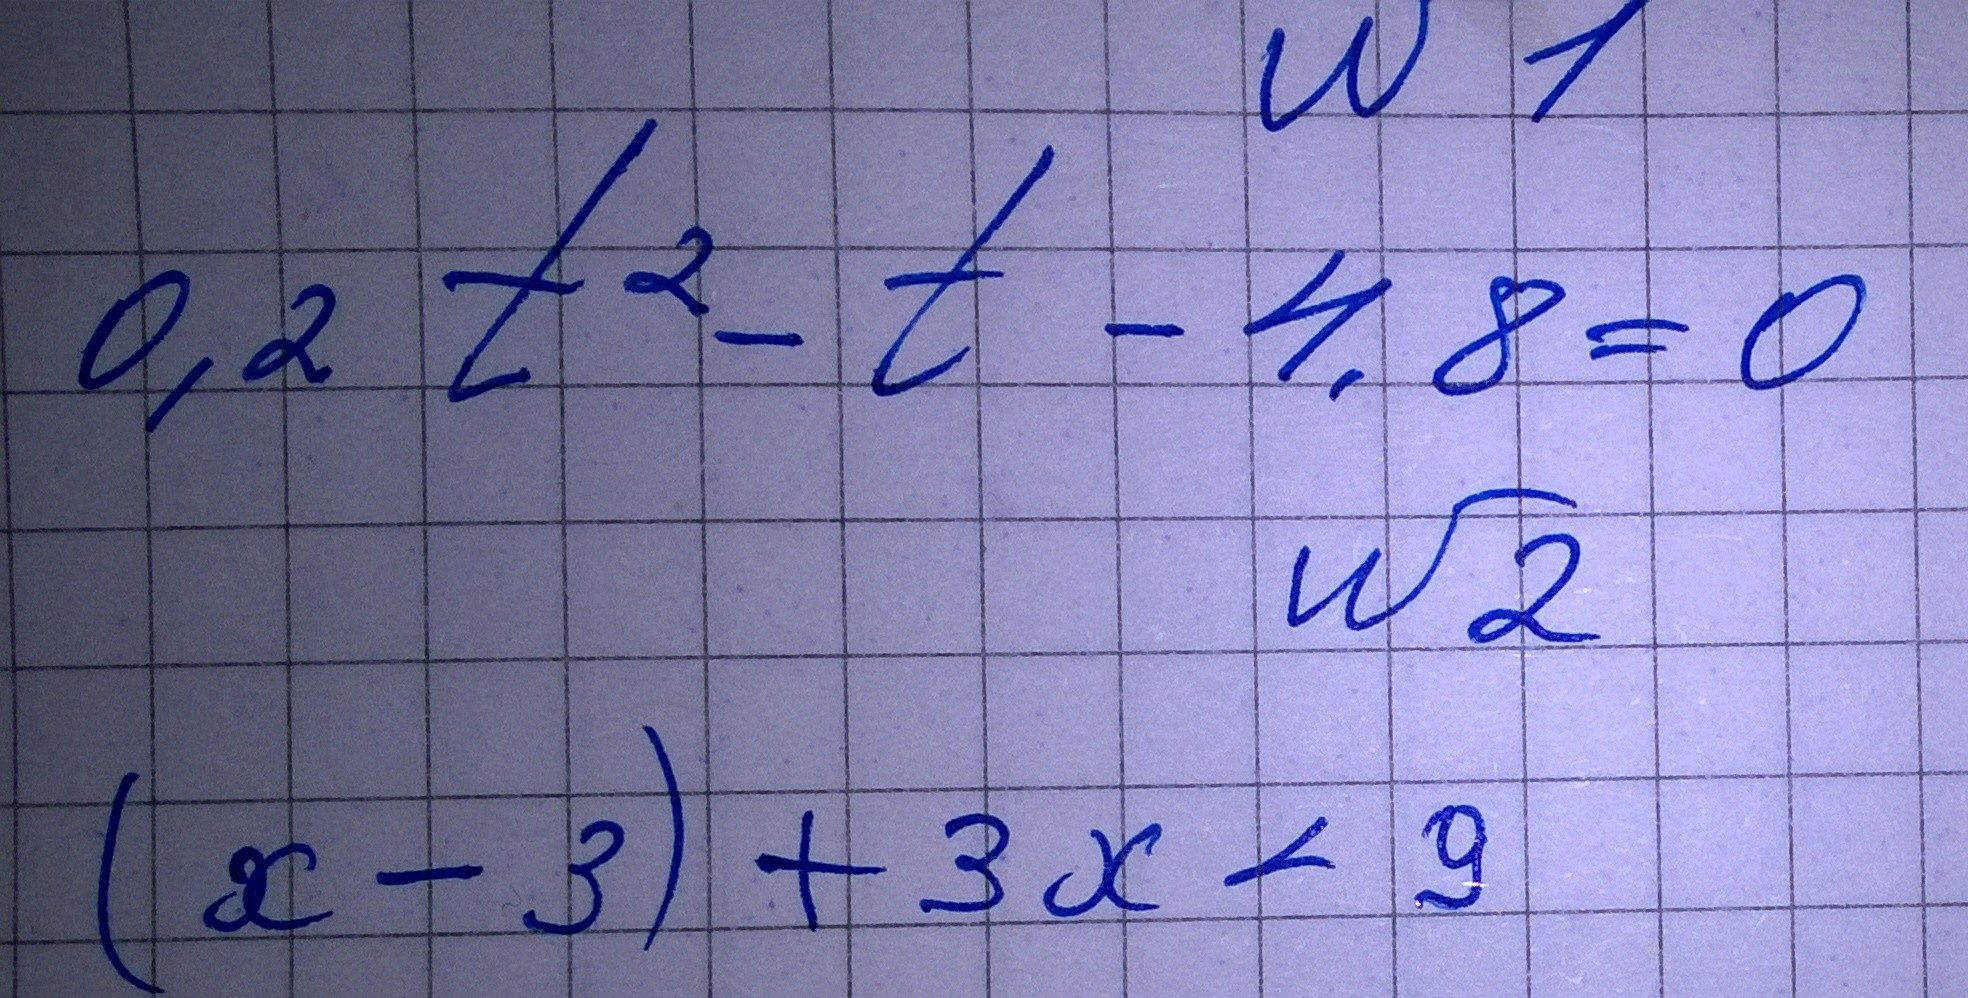 № 1
0,2 t² - t - 4.8 = 0
№ 2
(x - 3) + 3x < 9